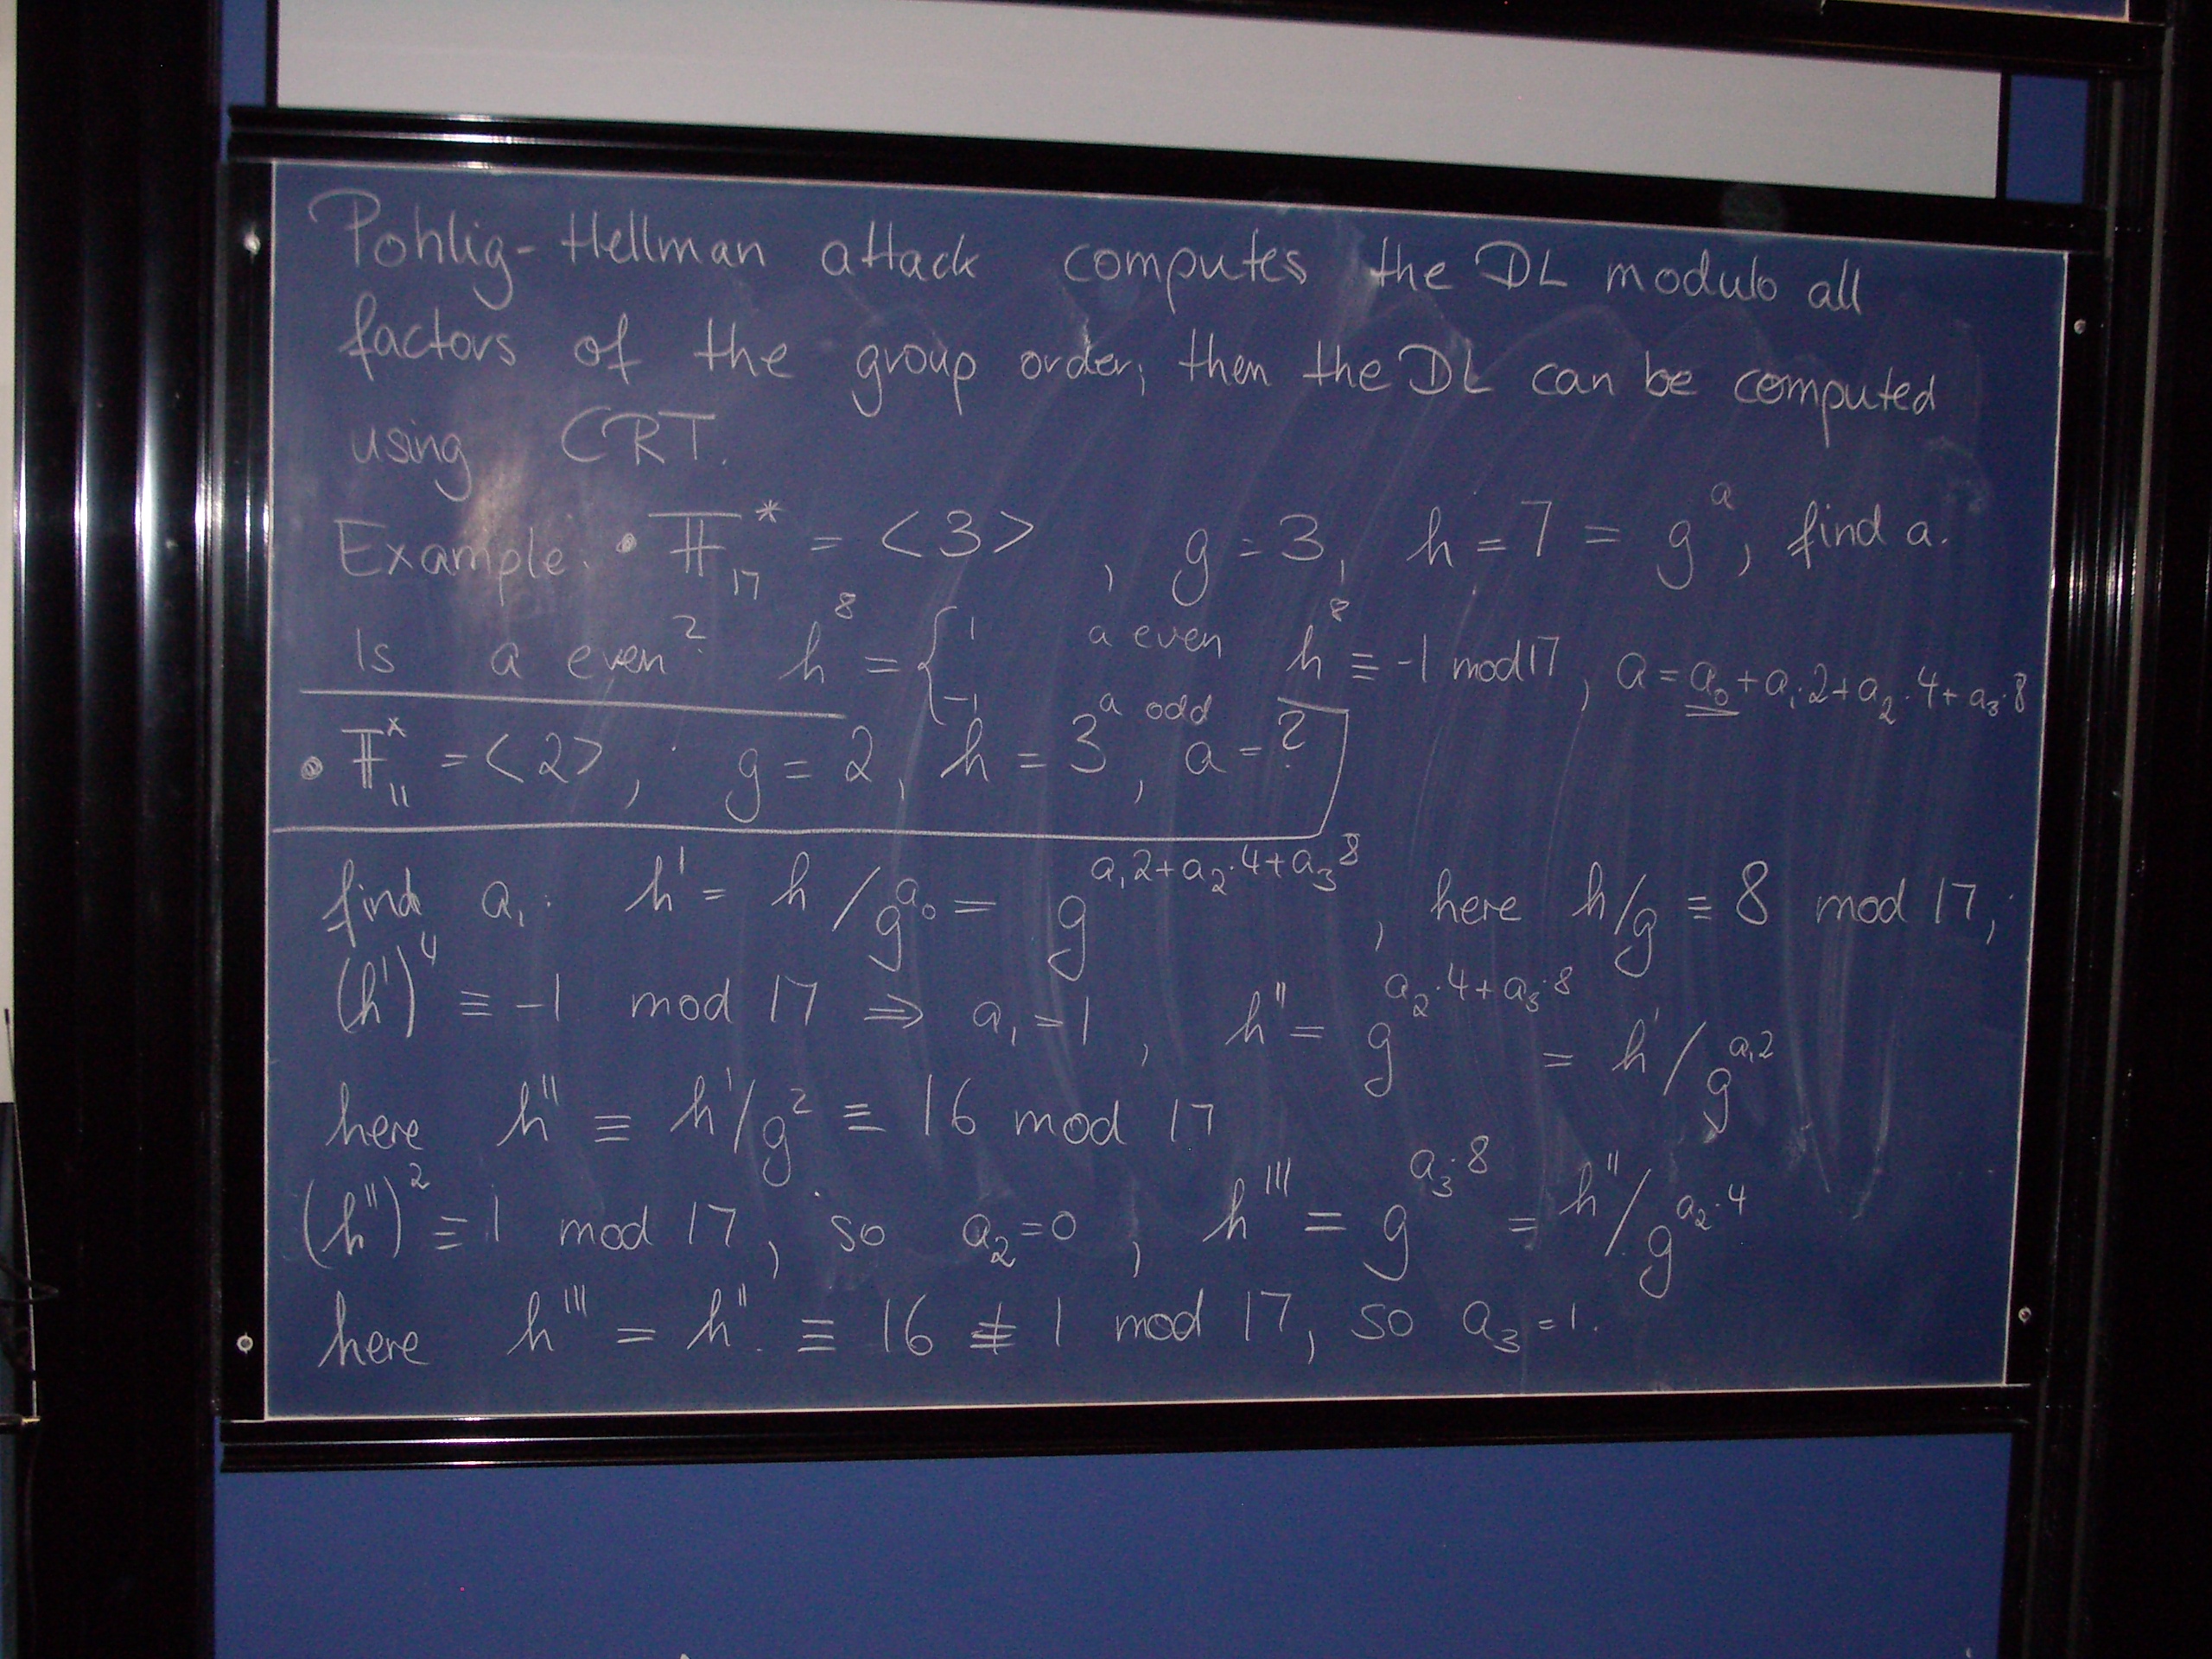 Pohlig-Hellman attack computes the DL modulo all
factors of the group order; then the DL can be computed
using CRT.
Example: • 𝔽₁₇* = <3>, g = 3, h = 7 = gᵃ, find a.
Is a even? h⁸ = { 1 a even, -1 a odd h⁸ ≡ -1 mod 17, a = a₀ + a₁·2 + a₂·4 + a₃·8
• 𝔽₁₁* = <2>, g = 2, h = 3, a = ?
find a₁: h' = h / g^(a₀) = g^(a₁2+a₂·4+a₃8), here h/g ≡ 8 mod 17,
(h')⁴ ≡ -1 mod 17 ⇒ a₁ = 1, h'' = g^(a₂·4+a₃·8) = h' / g^(a₁2)
here h'' ≡ h'/g² ≡ 16 mod 17
(h'')² ≡ 1 mod 17, so a₂ = 0, h''' = g^(a₃·8) = h'' / g^(a₂·4)
here h''' = h'' ≡ 16 ≢ 1 mod 17, so a₃ = 1.